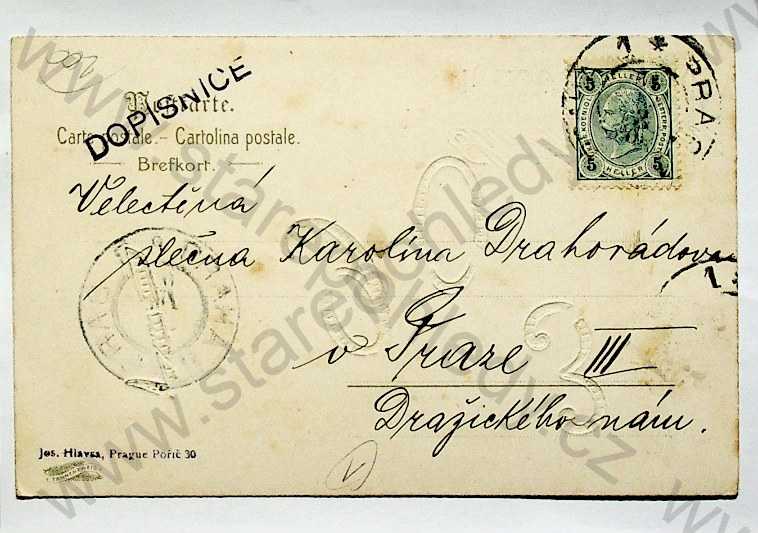 200
DOPISNICE
Postkarte.
Carte postale. - Cartolina postale.
Brefkort.
5 HELLER 5
5 HELLER 5
PRAG
Velectěná
slečna Karolína Drahorádova
v Praze III
Dražického nám.
PRAG PRAHA
Jos. Hlavsa, Prague Poříč 30
V
www.starepohledy.cz